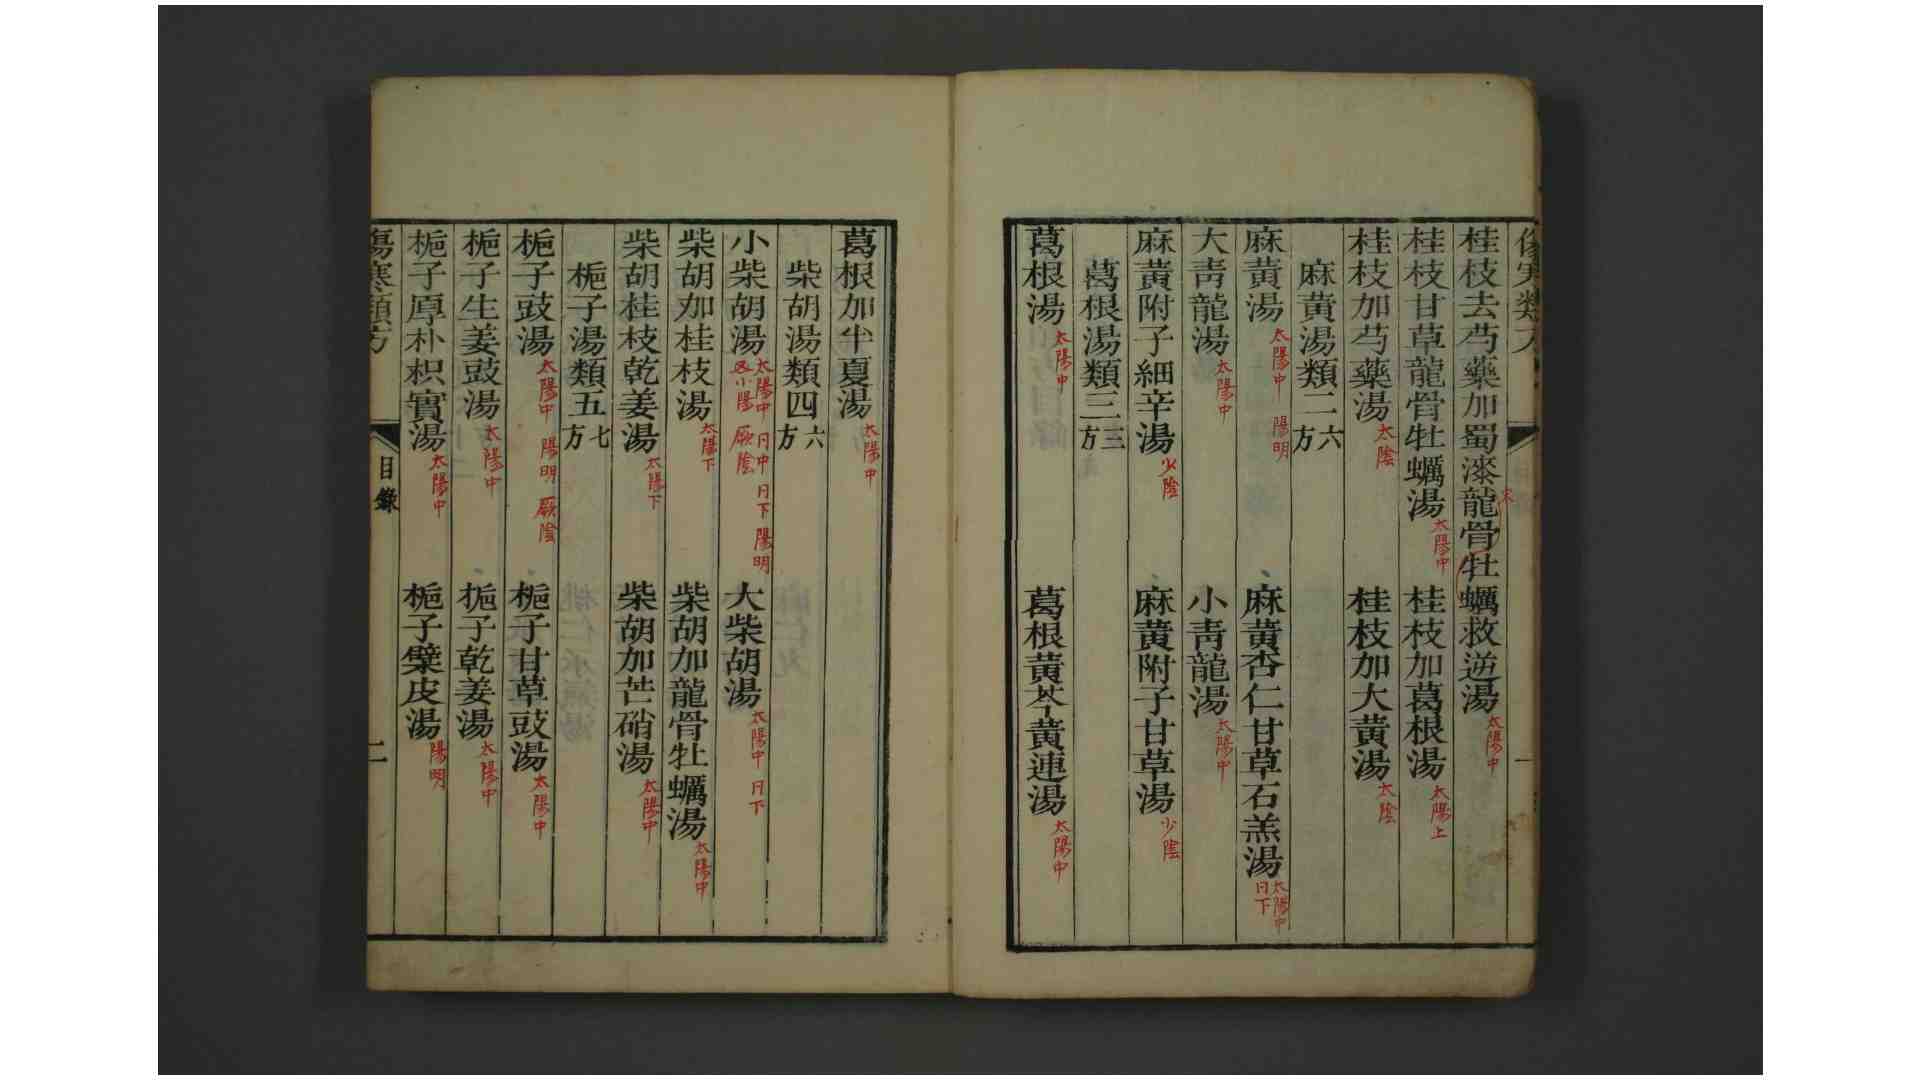 傷寒類方
一
桂枝去芍藥加蜀漆龍骨牡蠣救逆湯 太陽中
桂枝甘草龍骨牡蠣湯 太陽中 桂枝加葛根湯 太陽上
桂枝加芍藥湯 太陰 桂枝加大黃湯 太陰
麻黃湯類二 六方
麻黃湯 太陽中 陽明 麻黃杏仁甘草石羔湯 太陽中 日下
大靑龍湯 太陽中 小靑龍湯 太陽中
麻黃附子細辛湯 少陰 麻黃附子甘草湯 少陰
葛根湯類三 三方
葛根湯 太陽中 葛根黃芩黃連湯 太陽中
葛根加半夏湯 太陽中
柴胡湯類四 六方
小柴胡湯 太陽中 日中 日下 陽明 及小陽 厥陰 大柴胡湯 太陽中 日下
柴胡加桂枝湯 太陽下 柴胡加龍骨牡蠣湯 太陽中
柴胡桂枝乾姜湯 太陽下 柴胡加芒硝湯 太陽中
梔子湯類五 七方
梔子豉湯 太陽中 陽明 厥陰 梔子甘草豉湯 太陽中
梔子生姜豉湯 太陽中 梔子乾姜湯 太陽中
梔子厚朴枳實湯 太陽中 梔子檗皮湯 陽明
傷寒類方 目錄 二